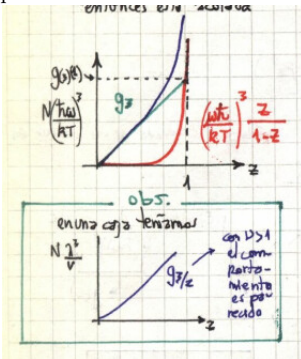 entonces está acotada
g₃(1)
g₃
N(ħω/kT)³
(ωħ/kT)³ z/1-z
1
z
obs.
en una caja teníamos
N λ³/V
g3/2
z
con D>1
el com-
porta-
miento
es pa-
recido